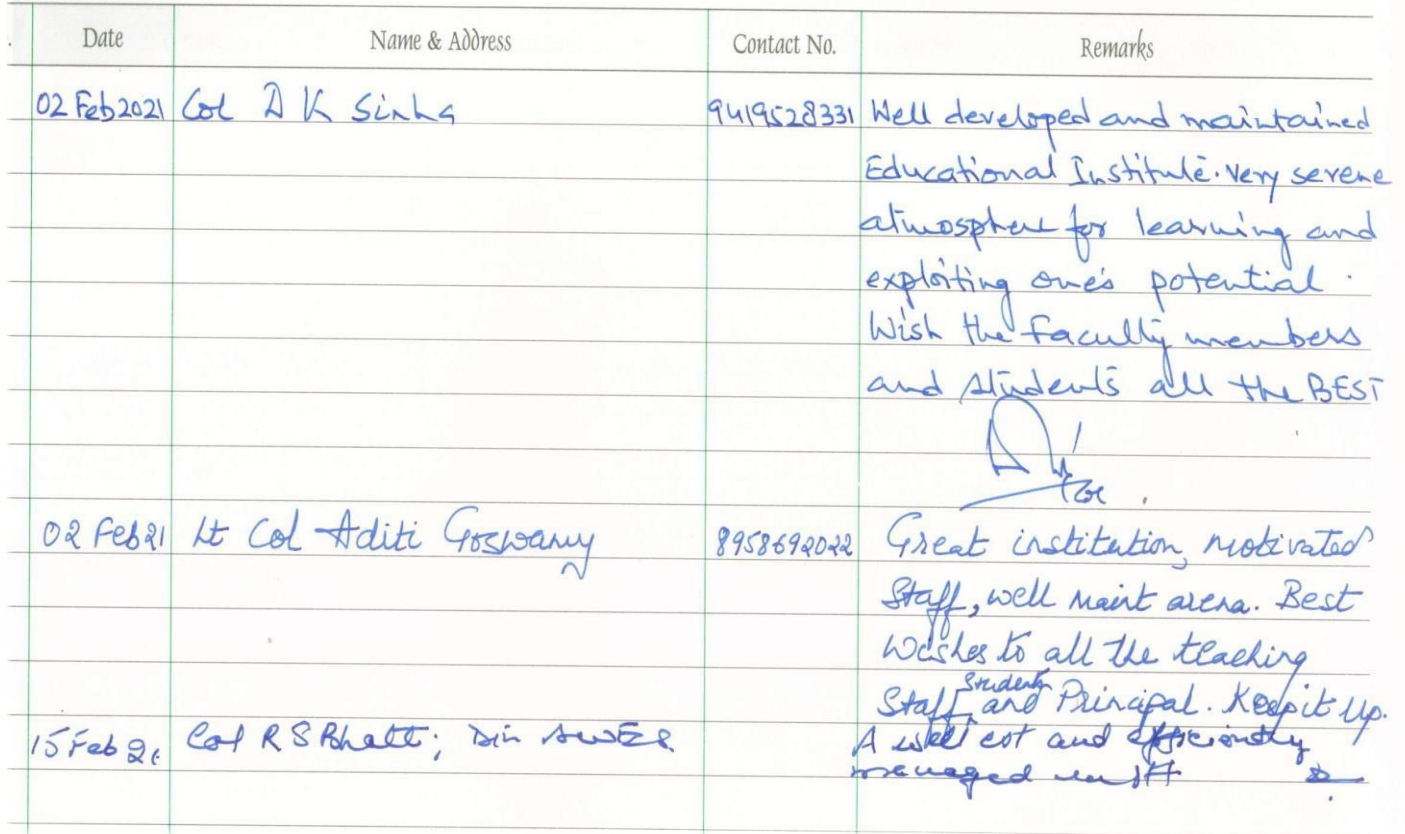 Date Name & Address Contact No. Remarks
02 Feb 2021 Col D K Sinha 9419528331 Well developed and maintained
Educational Institute. Very serene
atmosphere for learning and
exploiting one's potential.
Wish the faculty members
and students all the BEST
02 Feb 21 Lt Col Aditi Goswamy 8958692022 Great institution, motivated
Staff, well maint arena. Best
Wishes to all the teaching
Staff, students and Principal. Keep it up.
15 Feb 21 Col R S Bhatt; Dir AWES A well est and efficiently
managed